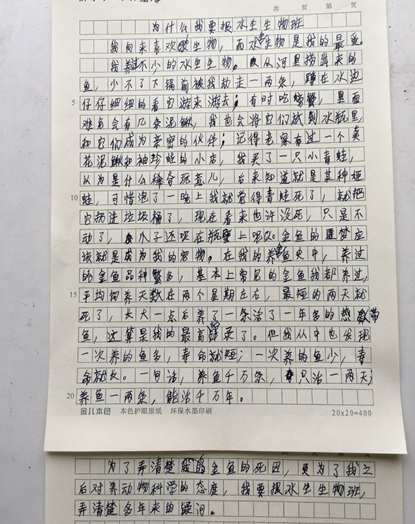 共 页 第 页
为什么我要报水生生物班
我向来喜欢生物，而水生是我的最爱。
我养不少的水生生物。从河里捞出来的
鱼，少不了下锅前被我劫走一两条，蹲在水边
5
仔仔细细的看它游来游去；有时吃螃蟹，里面
难免会有几条泥鳅，我也会将它们放到水瓶里
和它们成为亲密的伙伴；记得老家有过一个卖
花泥鳅和袖珍蛙的小店，我买了一只小青蛙，
以为是什么稀奇玩意儿，后来知道就是某种蛙
10
蛙，可惜泡了一晚上我就觉得青蛙死了，就把
它扔进垃圾桶了，现在看来也许没死，只是不
动了，爪子还吸在瓶壁上呢。金鱼的噩梦应
该就是成为我的宠物。在我的养鱼史中，养过
的金鱼品种繁多，基本上常见的金鱼我都养过，
15
平均饲养天数在两个星期左右，最短的两天就
死了，长大一点后养了一条活了一年多的热带
鱼，这算是我的最高记录了。但我从中也发现
一次养的鱼多，寿命就短；一次养的鱼少，寿
命就长。一句话，养鱼千万条，只活一两天；
20
养鱼一两条，能活千万年。
金儿本色 本色护眼原纸 环保水墨印刷 20x20=400
为了弄清楚我的金鱼的死因，更为了我之
后对养动物科学的态度，我要报水生生物班，
弄清楚多年来的疑问。